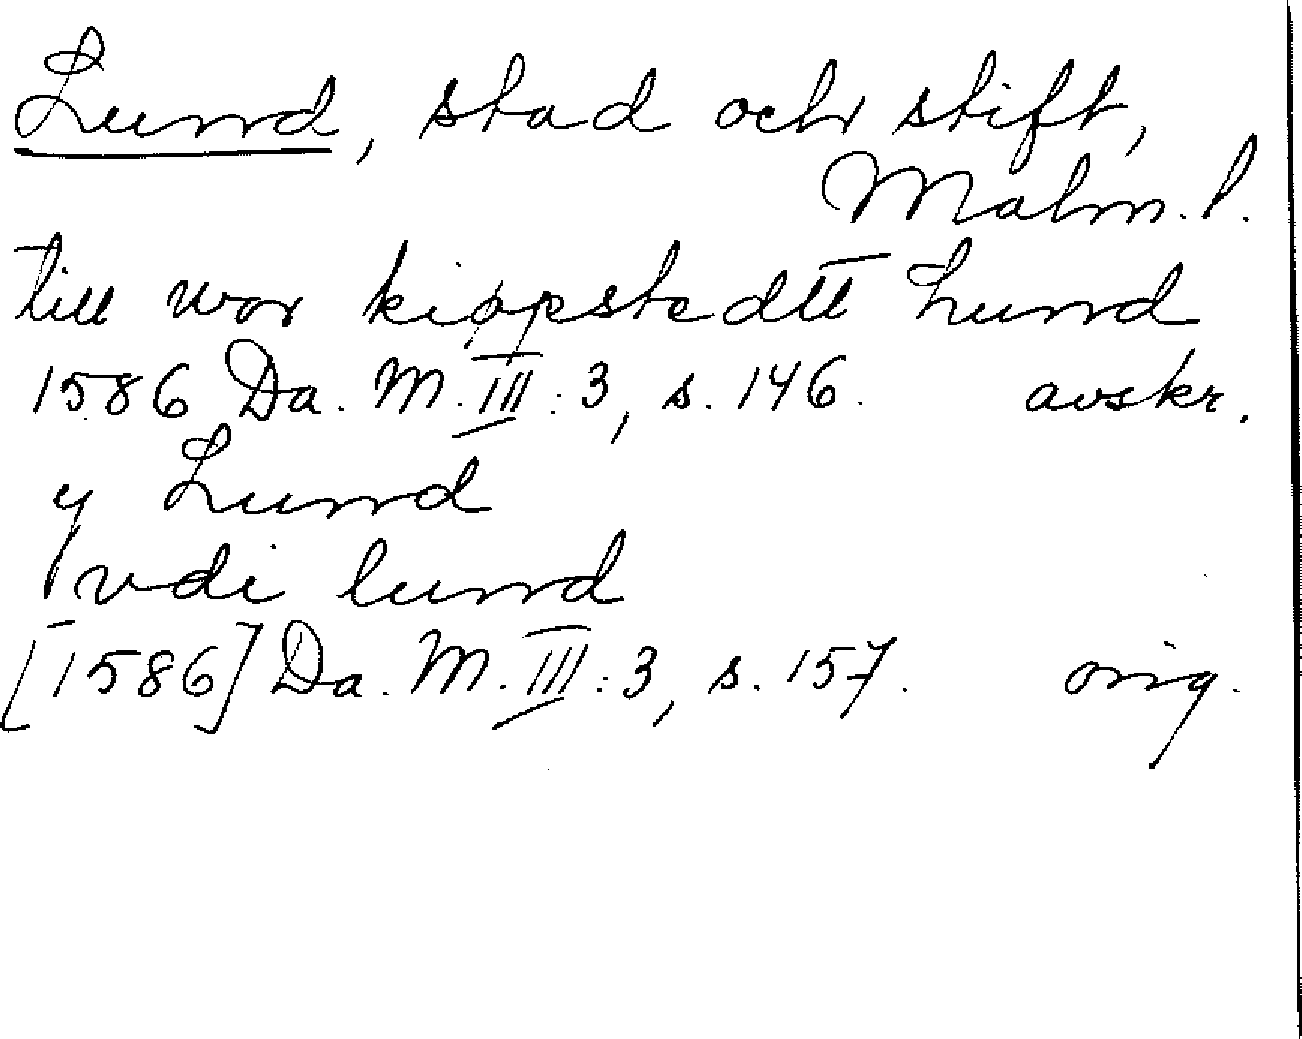 Lund, stad och stift,
Malm. l.
till wor kiøpstedtt Lund
1586 Da. M. III: 3, s. 146. avskr.
y Lund
vdi lund
[1586] Da. M. III: 3, s. 157. orig.